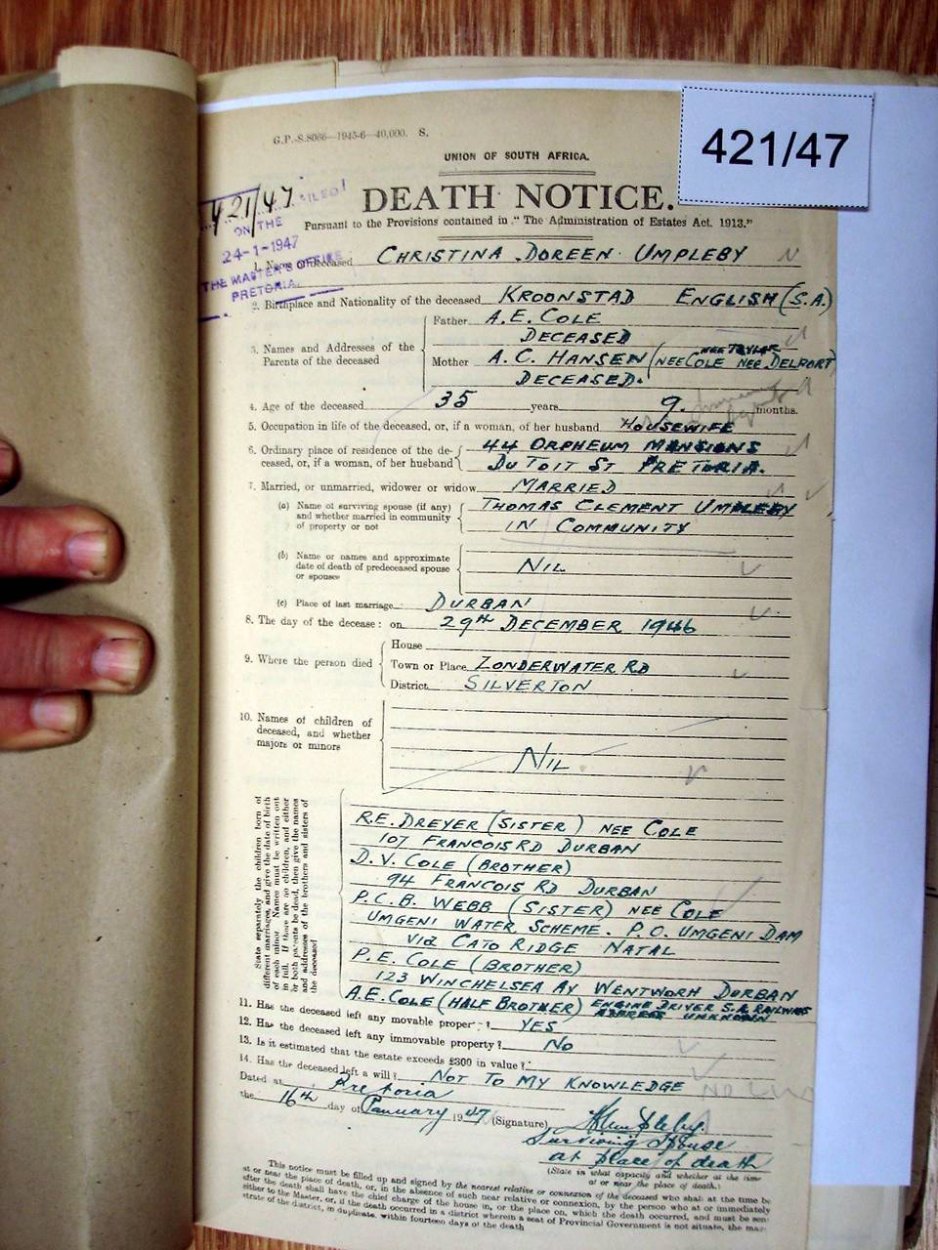 421/47
G.P.-S.8066—1945-6—40,000. S.
UNION OF SOUTH AFRICA.
DEATH NOTICE.
Pursuant to the Provisions contained in "The Administration of Estates Act. 1913."
421/47
FILED!
ON THE
24-1-1947
THE MASTER'S OFFICE
PRETORIA.
1. Name of deceased CHRISTINA DOREEN UMPLEBY
2. Birthplace and Nationality of the deceased KROONSTAD ENGLISH (S.A.)
3. Names and Addresses of the Parents of the deceased
Father A.E. COLE
DECEASED
Mother A.C. HANSEN (NEE COLE NEE TAYLOR NEE DELPORT)
DECEASED.
4. Age of the deceased 35 years 9. months.
5. Occupation in life of the deceased, or, if a woman, of her husband HOUSEWIFE
6. Ordinary place of residence of the de- 44 ORPHEUM MANSIONS
ceased, or, if a woman, of her husband DU TOIT ST PRETORIA.
7. Married, or unmarried, widower or widow MARRIED
(a) Name of surviving spouse (if any) THOMAS CLEMENT UMPLEBY
and whether married in community IN COMMUNITY
of property or not
(b) Name or names and approximate
date of death of predeceased spouse NIL
or spouses
(c) Place of last marriage DURBAN
8. The day of the decease: on 29th DECEMBER 1946
9. Where the person died
House
Town or Place ZONDERWATER RD
District SILVERTON
10. Names of children of
deceased, and whether
majors or minors
NIL.
State separately the children born of
different marriages, and give the date of birth
of each minor Names must be written out
in full. If there are no children, and either
or both parents be dead, then give the names
and addresses of the brothers and sisters of
the deceased
R.E. DREYER (SISTER) NEE COLE
107 FRANCOIS RD DURBAN
D.V. COLE (BROTHER)
94 FRANCOIS RD DURBAN
P.C.B. WEBB (SISTER) NEE COLE
UMGENI WATER SCHEME. P.O. UMGENI DAM
VIA CATO RIDGE NATAL
P.E. COLE (BROTHER)
123 WINCHELSEA AV WENTWORH DURBAN
A.E. COLE (HALF BROTHER) ENGINE DRIVER S.A. RAILWAYS
ADDRESS UNKNOWN
11. Has the deceased left any movable property? YES
12. Has the deceased left any immovable property? NO
13. Is it estimated that the estate exceeds £300 in value?
14. Has the deceased left a will? NOT TO MY KNOWLEDGE
Dated at Pretoria
the 16th day of January 1947 (Signature)
Surviving Spouse
at place of death
(State in what capacity and whether at the time
at or near the place of death.)
This notice must be filled up and signed by the nearest relative or connexion of the deceased who shall at the time be
at or near the place of death, or, in the absence of such near relative or connexion, by the person who at or immediately
after the death shall have the chief charge of the house in, or the place on, which the death occurred, and must be sent
either to the Master, or, if the death occurred in a district wherein a seat of Provincial Government is not situate, the
strate of the district, in duplicate, within fourteen days of the death